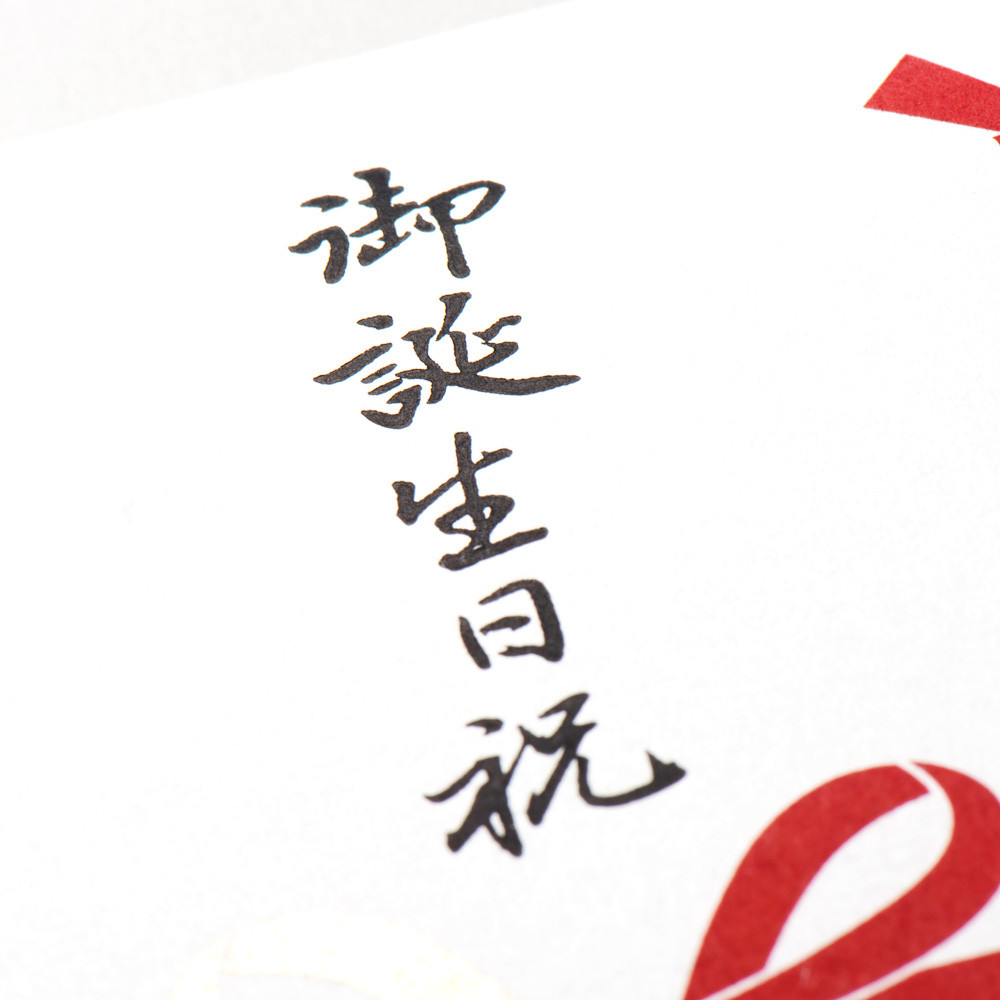 御誕生日祝